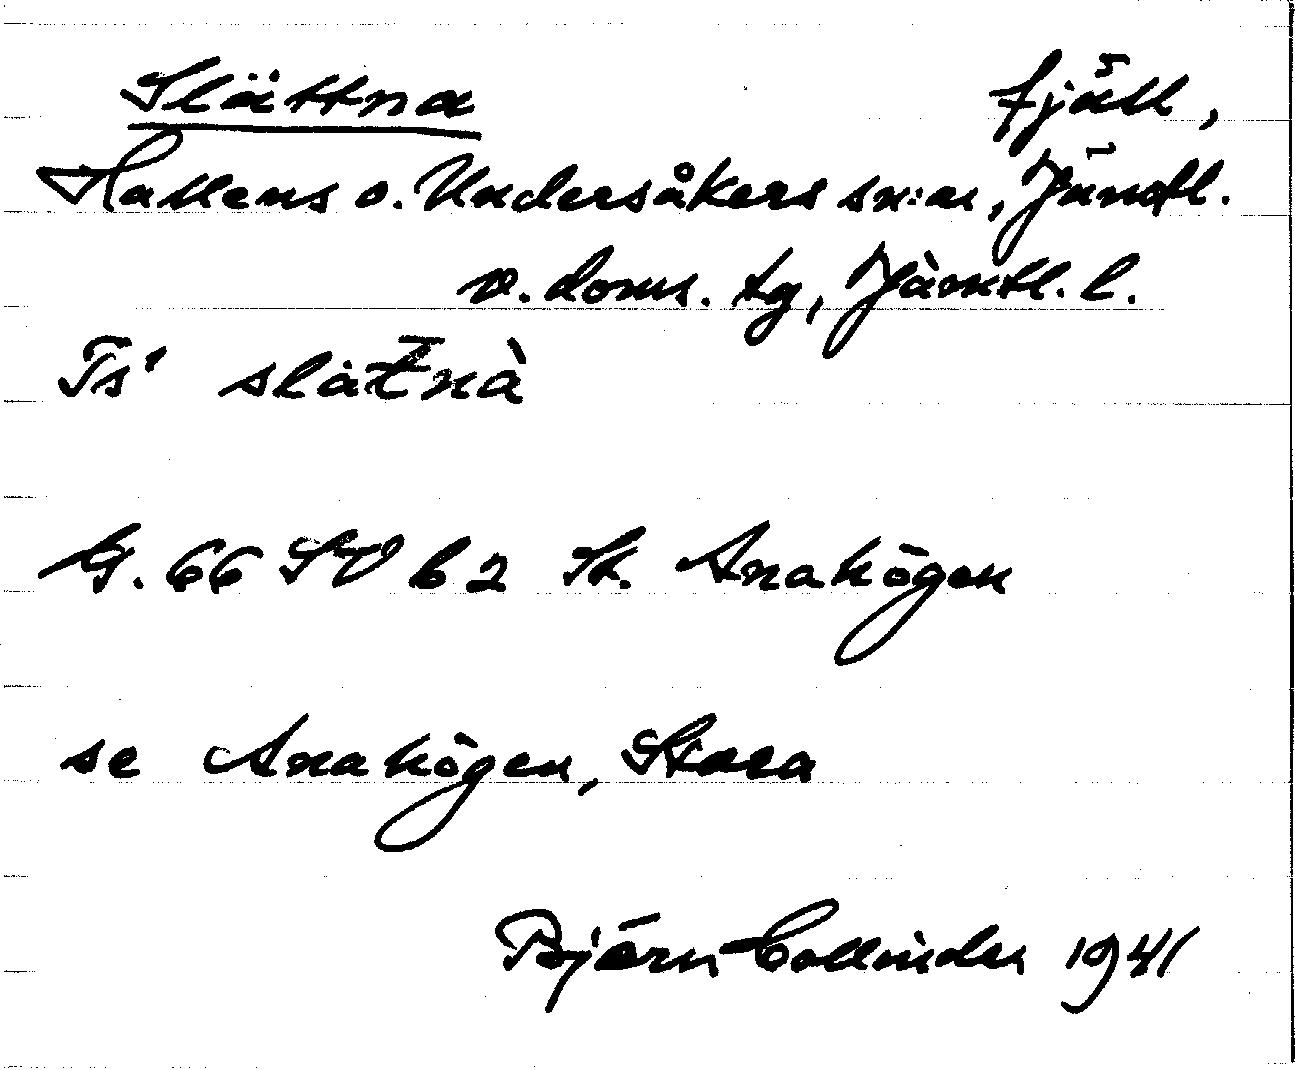 Slättna fjäll,
Hallens o. Undersåkers sn:ar, Jämtl.
v. doms. tg, Jämtl. l.
Ts' slät̄nà
G. 66 SV b 2 St. Anahögen
se Anahögen, Stora
Björn Collinder 1941